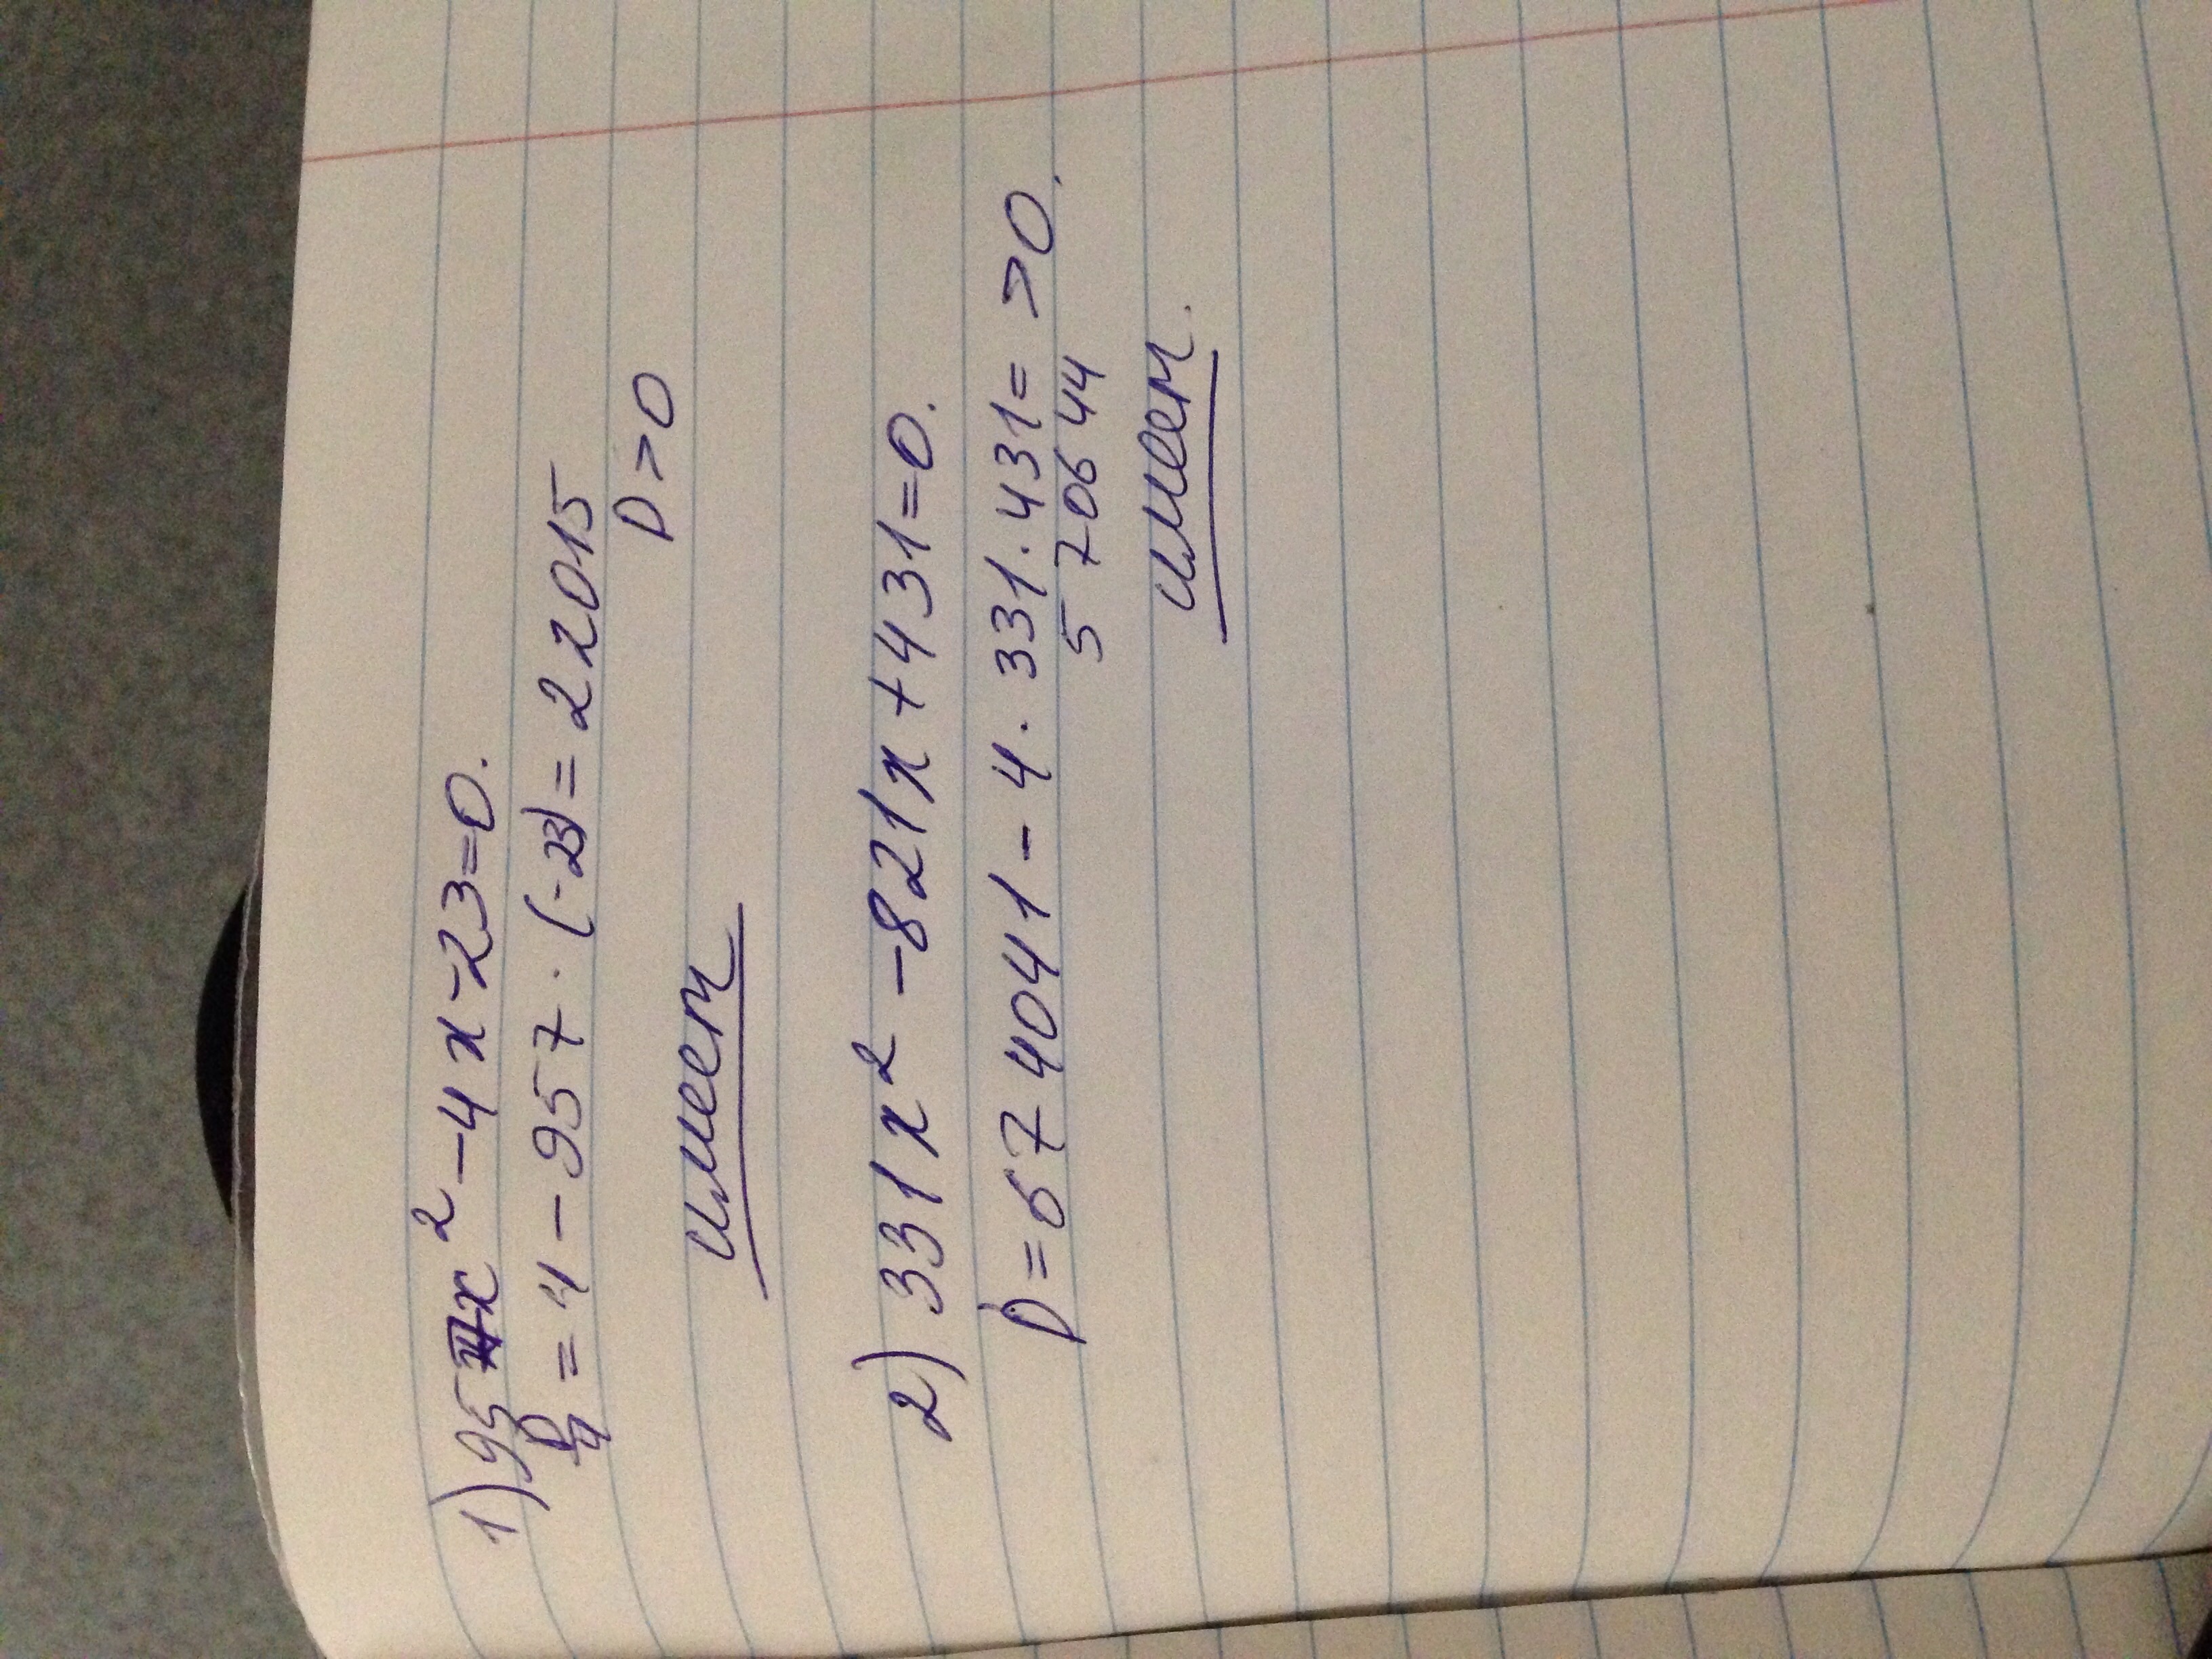 1) 957x² - 4x - 23 = 0.
D/4 = 4 - 957 · (-23) = 22015
D > 0
имеет
2) 331x² - 821x + 431 = 0.
D = 674041 - 4 · 331 · 431 = > 0.
570644
имеет.